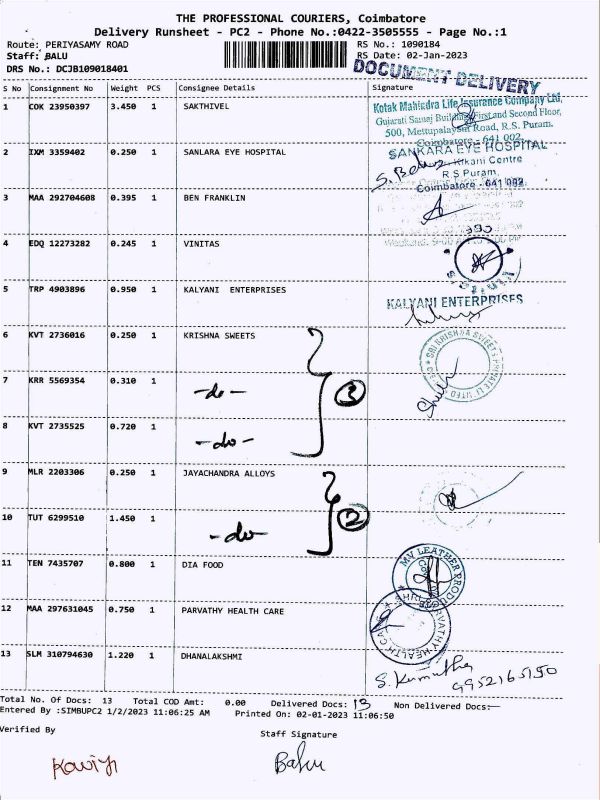 THE PROFESSIONAL COURIERS, Coimbatore
Delivery Runsheet - PC2 - Phone No.:0422-3505555 - Page No.:1
Route: PERIYASAMY ROAD
RS No.: 1090184
Staff: BALU
RS Date: 02-Jan-2023
DRS No.: DCJB109018401
DOCUMENT DELIVERY
S No Consignment No Weight PCS Consignee Details Signature
1 COK 23950397 3.450 1 SAKTHIVEL
Kotak Mahindra Life Insurance Company Ltd,
Gujarati Samaj Building First and Second Floor,
500, Mettupalayam Road, R.S. Puram.
Coimbatore - 641 002.
2 IXM 3359402 0.250 1 SANLARA EYE HOSPITAL
SANKARA EYE HOSPITAL
Kikani Centre
R.S Puram,
Coimbatore - 641 002
3 MAA 292704608 0.395 1 BEN FRANKLIN
4 EDQ 12273282 0.245 1 VINITAS
5 TRP 4903896 0.950 1 KALYANI ENTERPRISES
KALYANI ENTERPRISES
6 KVT 2736016 0.250 1 KRISHNA SWEETS
SRI KRISHNA SWEETS PRIVATE LIMITED
7 KRR 5569354 0.310 1 -do-
3
8 KVT 2735525 0.720 1 -do-
9 MLR 2203306 0.250 1 JAYACHANDRA ALLOYS
10 TUT 6299510 1.450 1 -do-
2
11 TEN 7435707 0.800 1 DIA FOOD
MV LEATHER PROD
12 MAA 297631045 0.750 1 PARVATHY HEALTH CARE
PARVATHY HEALTH CA
13 SLM 310794630 1.220 1 DHANALAKSHMI
S. Kumutha
9952165150
Total No. Of Docs: 13 Total COD Amt: 0.00 Delivered Docs: 13 Non Delivered Docs:-
Entered By :SIMBUPC2 1/2/2023 11:06:25 AM Printed On: 02-01-2023 11:06:50
Verified By
Staff Signature
Balu